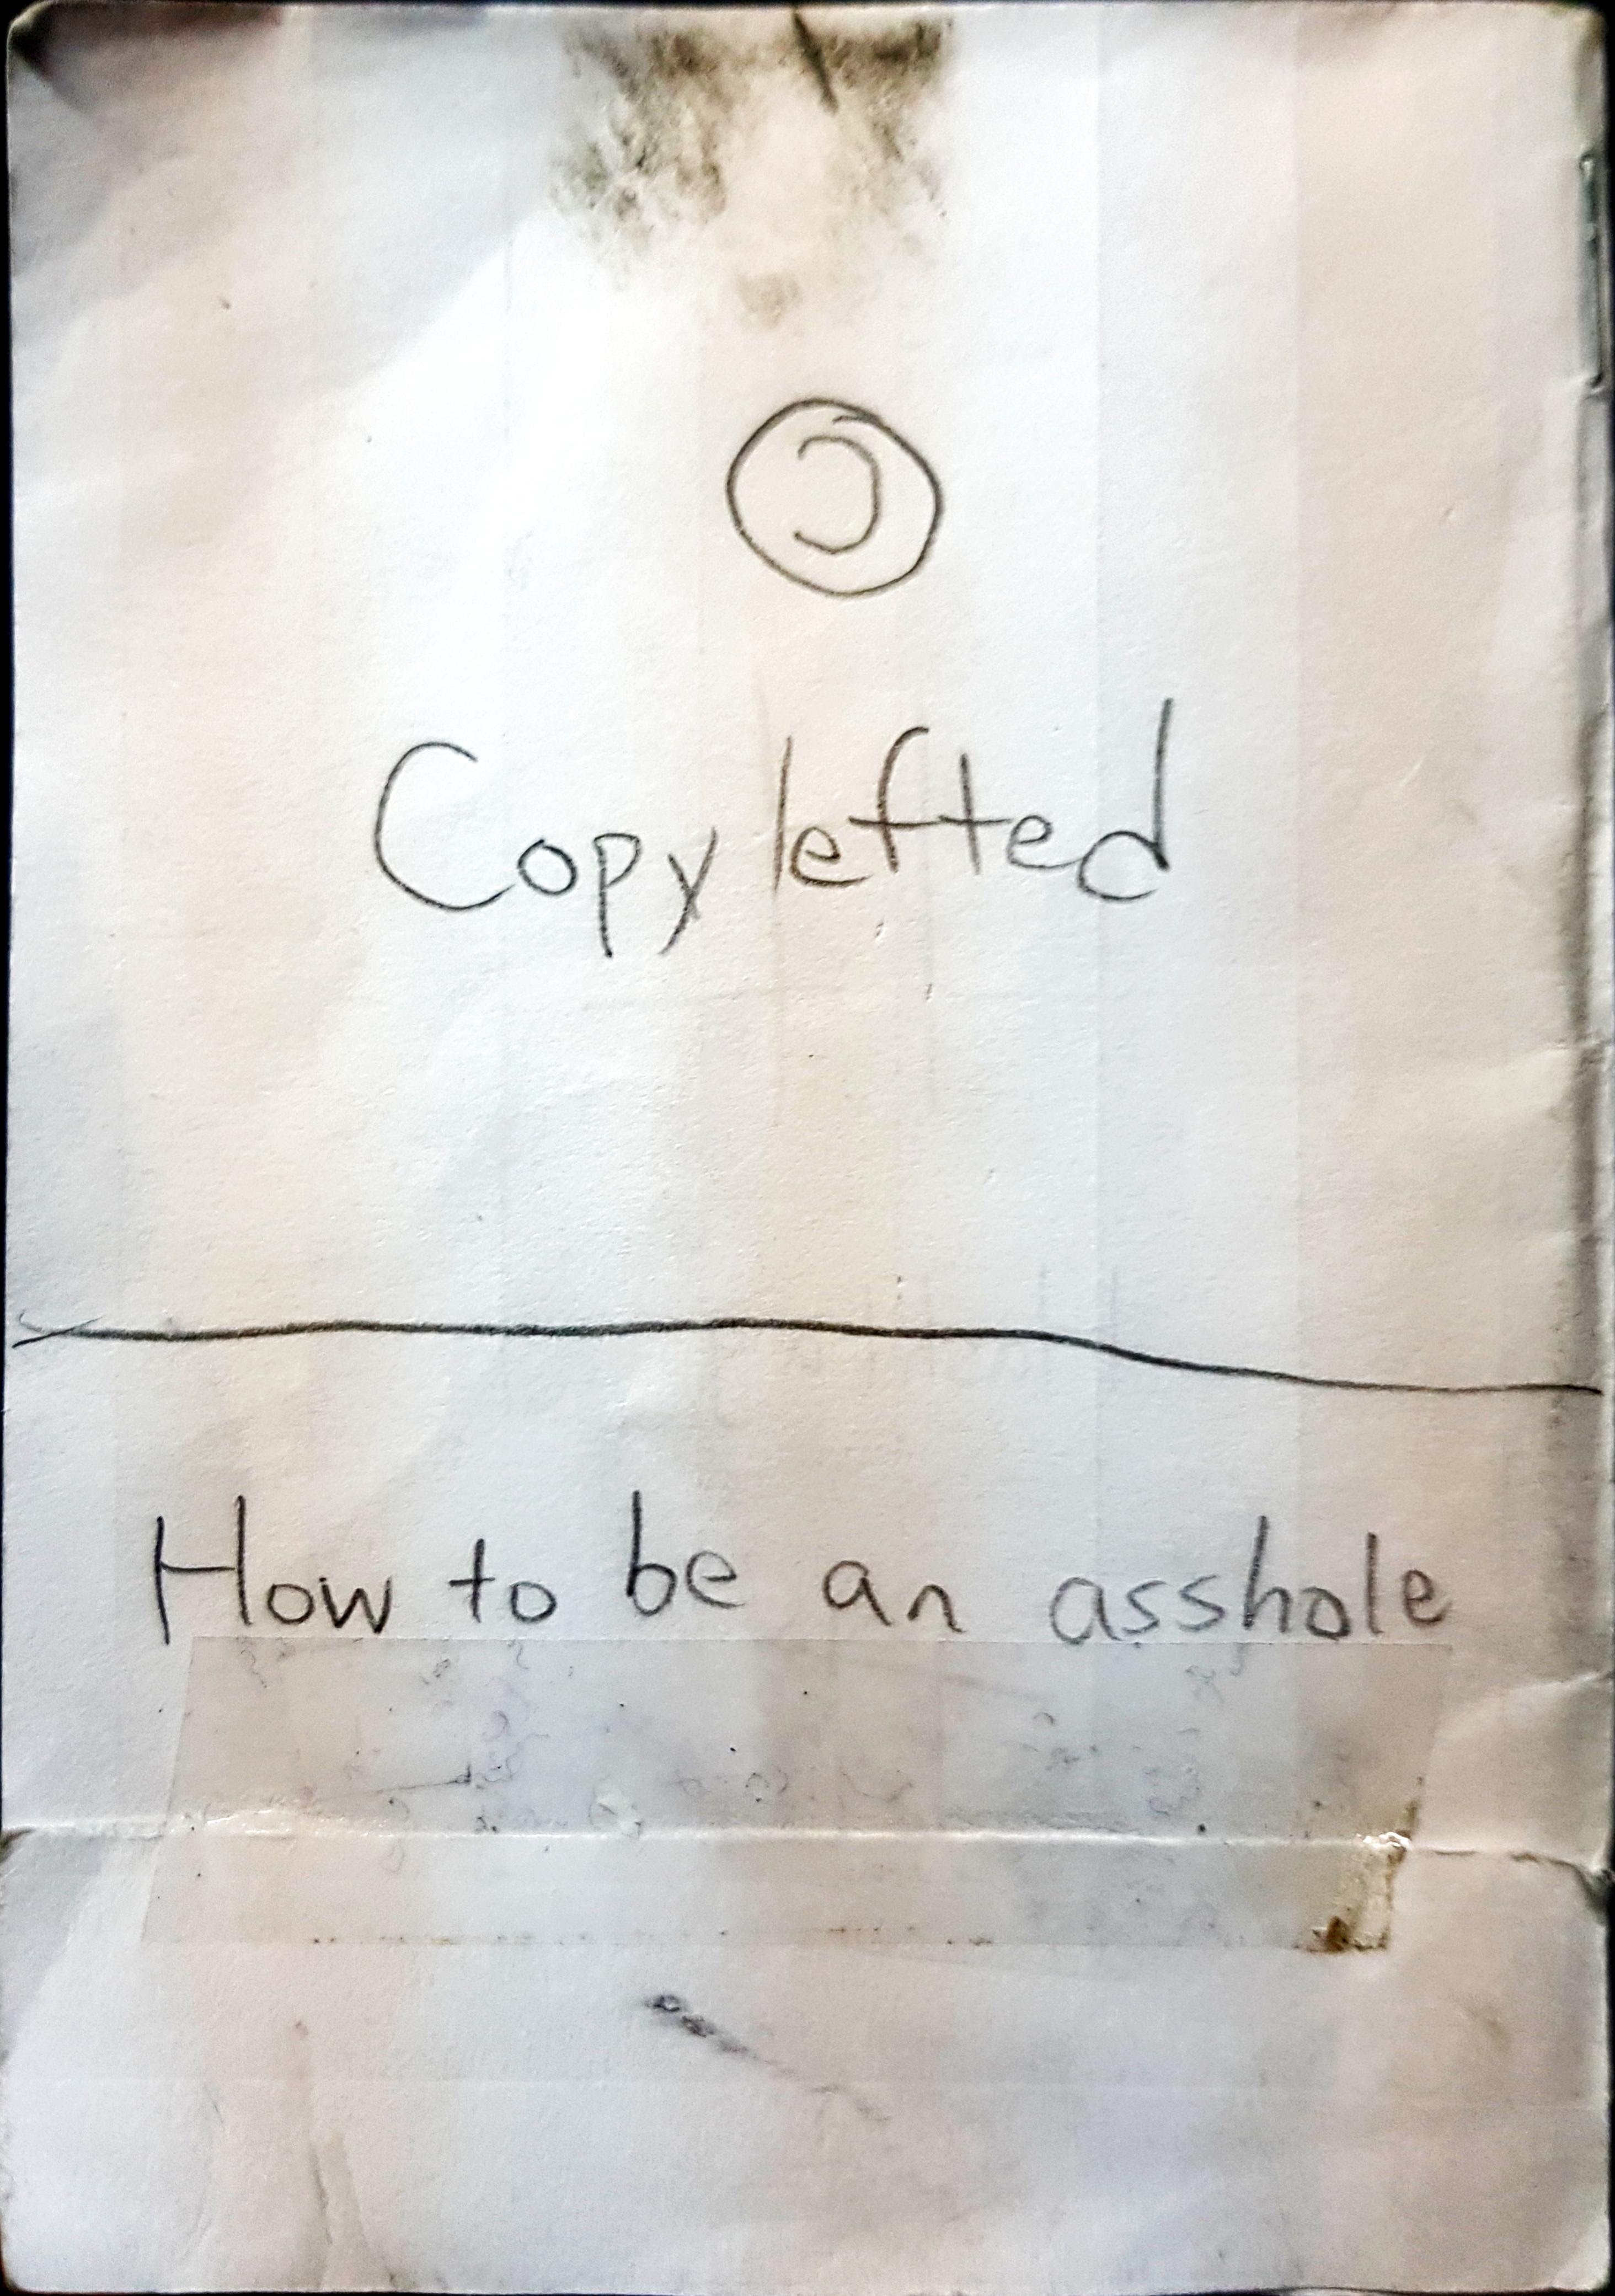 🄯
Copylefted
How to be an asshole